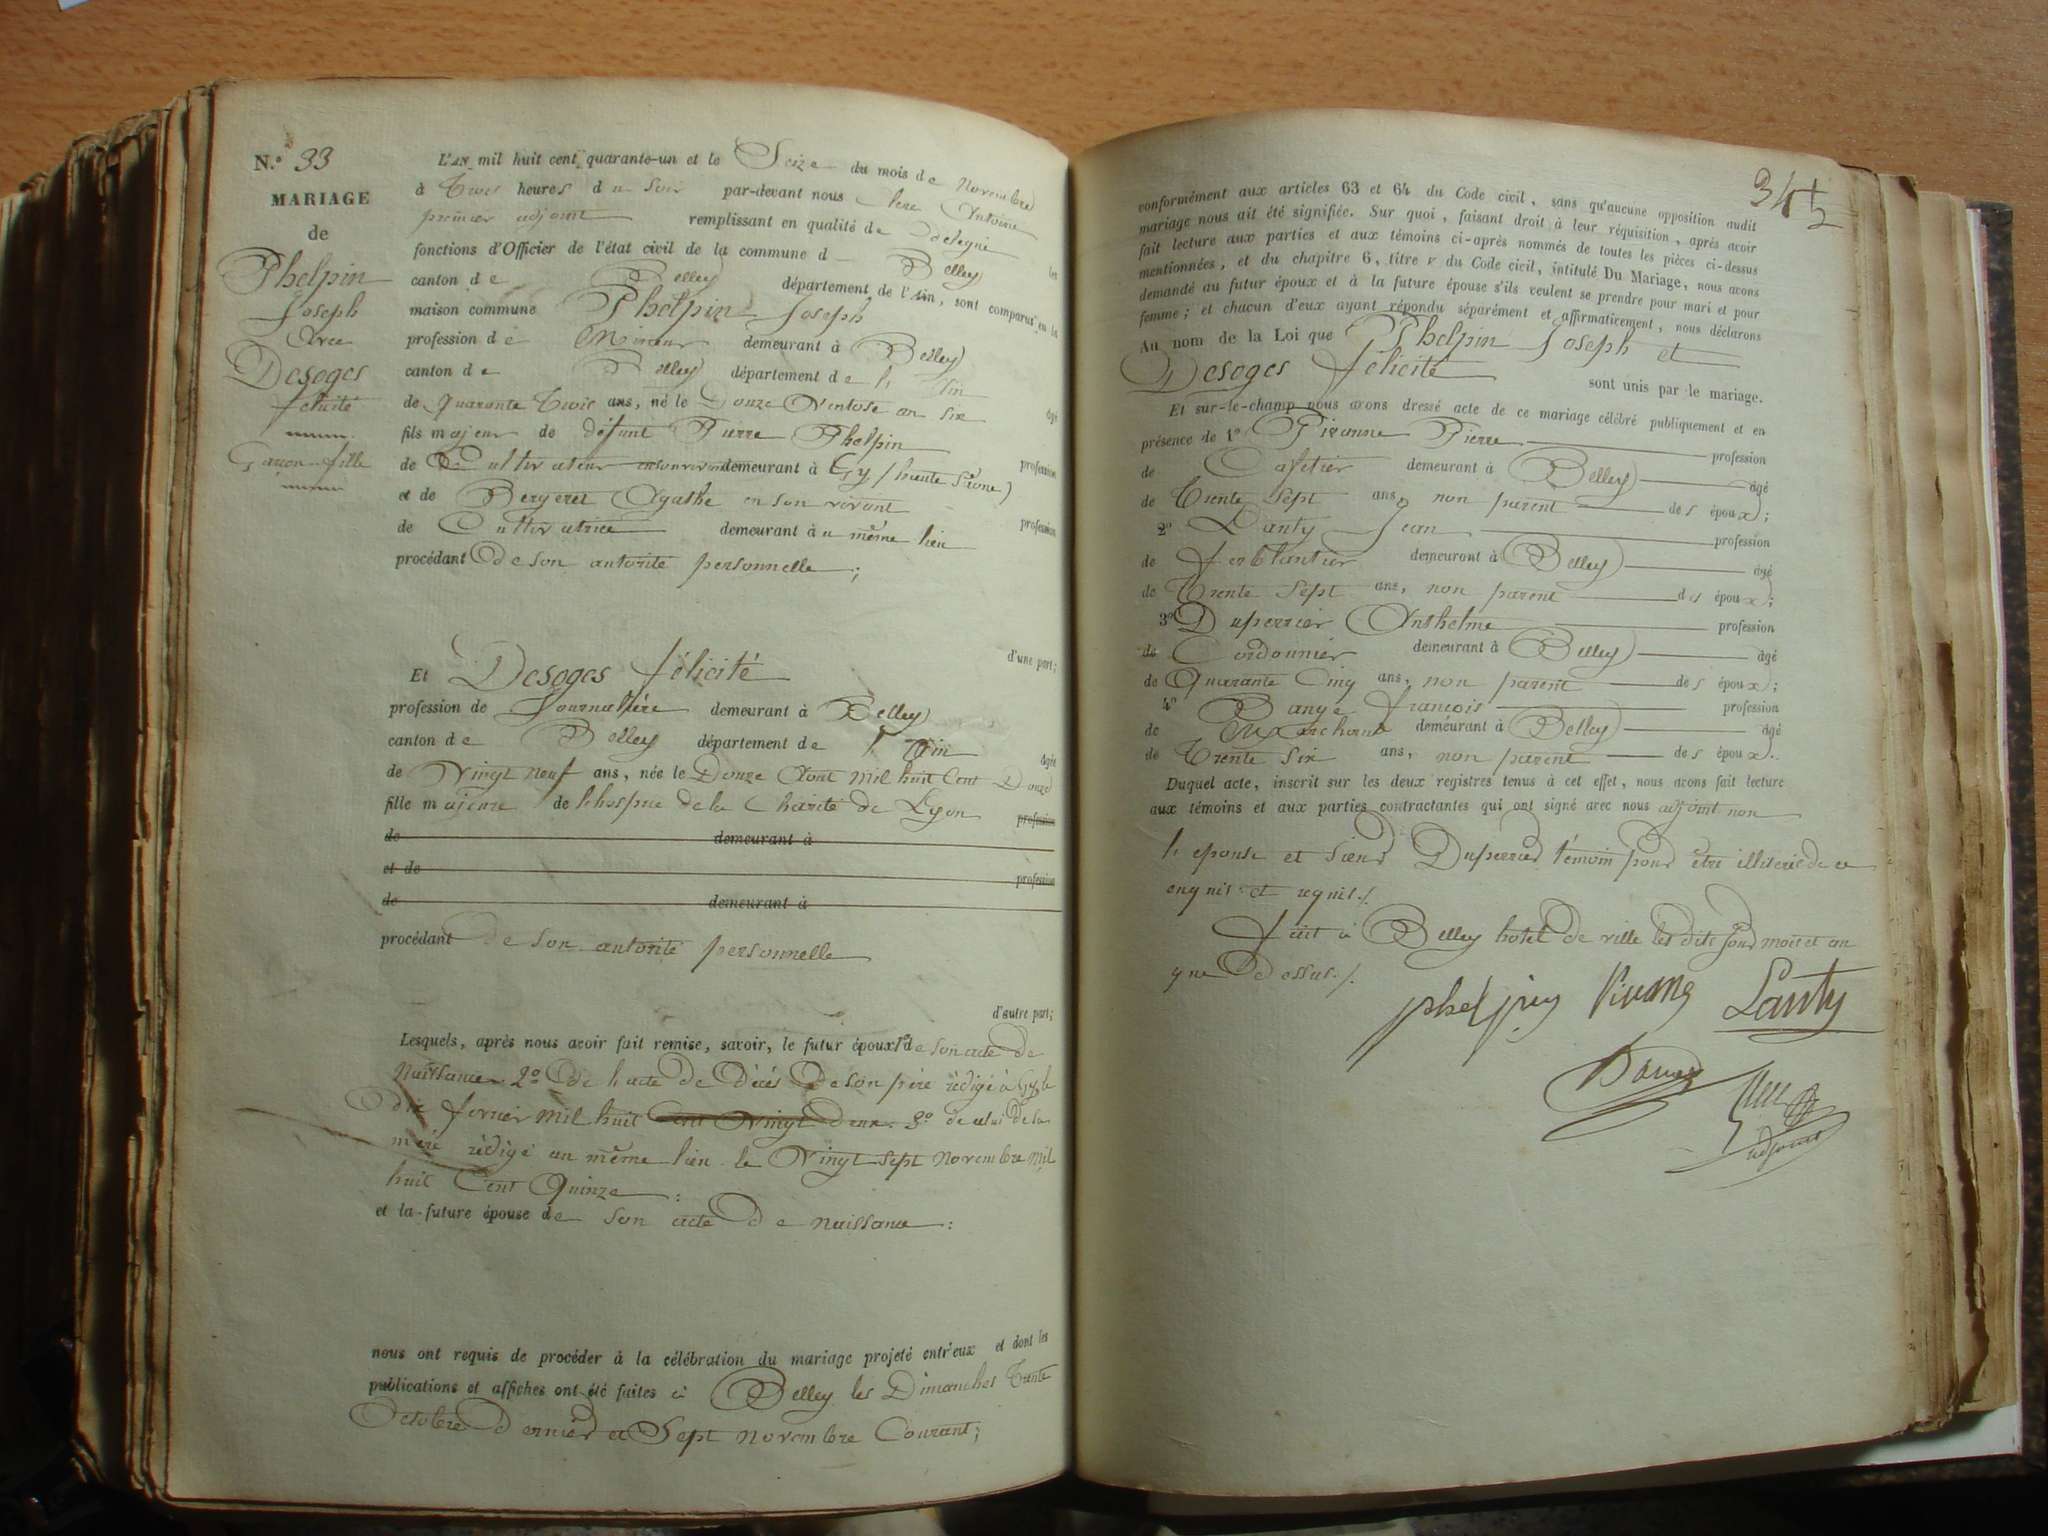 N.º 33
MARIAGE
de
Phelpin
Joseph
Avec
Desoges
félicité
Garçon-fille
L'AN mil huit cent quarante-un et le Seize du mois de Novembre
à Trois heures du soir par-devant nous Antoine
premier adjoint remplissant en qualité de Délégué les
fonctions d'Officier de l'état civil de la commune d Belley
canton de Belley département de l'Ain, sont comparus en la
maison commune Phelpin Joseph
profession de Mineur demeurant à Belley
canton de Belley département de l'Ain âgé
de Quarante Trois ans, né le Douze Ventose an six
fils majeur de défunt Pierre Phelpin profession
de Cultivateur en son vivant demeurant à Gy (haute Saône)
et de Bergeret Agathe en son vivant profession
de Cultivatrice demeurant au même lieu
procédant de son autorité personnelle ;
d'une part;
Et Desoges félicité
profession de Journalière demeurant à Belley
canton de Belley département de l'Ain âgée
de Vingt neuf ans, née le Douze Aout mil huit Cent Douze
fille majeure de l'hospice de la Charité de Lyon profession
de demeurant à
et de profession
de demeurant à
procédant de son autorité personnelle
d'autre part;
Lesquels, après nous avoir fait remise, savoir, le futur époux 1º de son acte de
Naissance 2º De l'acte de Décès De son père rédigé à Gy le
dix fevrier mil huit Cent Vingt Deux. 3º de celui de sa
mère rédigé au même lieu le Vingt sept Novembre mil
huit Cent Quinze :
et la future épouse de son acte De naissance :
nous ont requis de procéder à la célébration du mariage projeté entr'eux et dont les
publications et affiches ont été faites à Belley les Dimanches Trente
Octobre Dernier et Sept Novembre Courant ;
34
conformément aux articles 63 et 64 du Code civil, sans qu'aucune opposition audit
mariage nous ait été signifiée. Sur quoi, faisant droit à leur réquisition, après avoir
fait lecture aux parties et aux témoins ci-après nommés de toutes les pièces ci-dessus
mentionnées, et du chapitre 6, titre v du Code civil, intitulé Du Mariage, nous avons
demandé au futur époux et à la future épouse s'ils veulent se prendre pour mari et pour
femme ; et chacun d'eux ayant répondu séparément et affirmativement, nous déclarons
Au nom de la Loi que Phelpin Joseph et
Desoges félicité sont unis par le mariage.
Et sur-le-champ nous avons dressé acte de ce mariage célébré publiquement et en
présence de 1º Pivanne Pierre profession
de Cafetier demeurant à Belley âgé
de Trente Sept ans, non parent des époux ;
2º Lanty Jean profession
de ferblantier demeurant à Belley âgé
de Trente Sept ans, non parent des époux ;
3º Duperrier Anthelme profession
de Cordonnier demeurant à Belley âgé
de Quarante Cinq ans, non parent des époux ;
4º françois profession
de Marchand demeurant à Belley âgé
de Trente Six ans, non parent des époux.
Duquel acte, inscrit sur les deux registres tenus à cet effet, nous avons fait lecture
aux témoins et aux parties contractantes qui ont signé avec nous adjoint non
l'epouse et sieur Duperrier témoin pour être illiterés de ce
enquis et requis ./.
fait à Belley hotel De ville les dits jour mois et an
que Dessus. /.
phelpin Pivane Lanty
adjoint